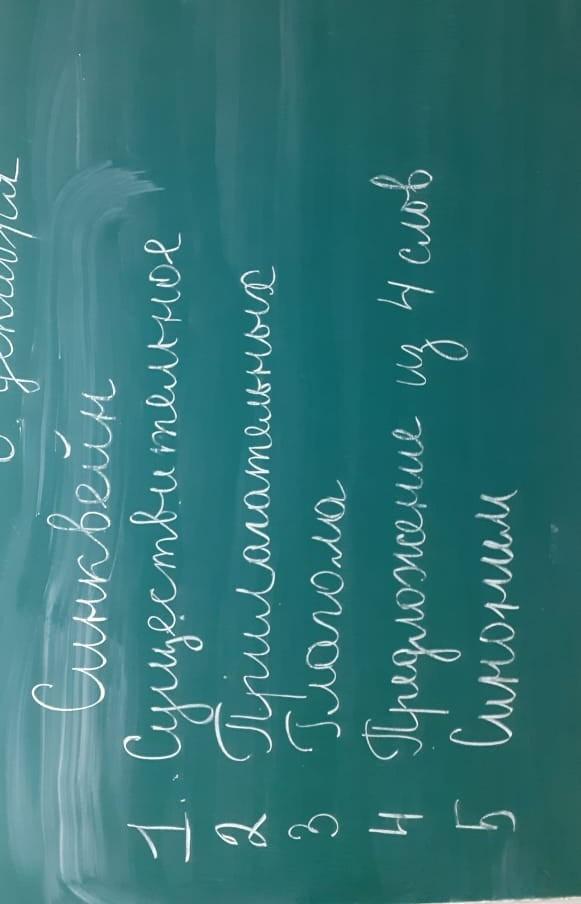 декабря
Синквейн
1. Существительное
2 Прилагательных
3 Глагола
4 Предложение из 4 слов
5 Синоним